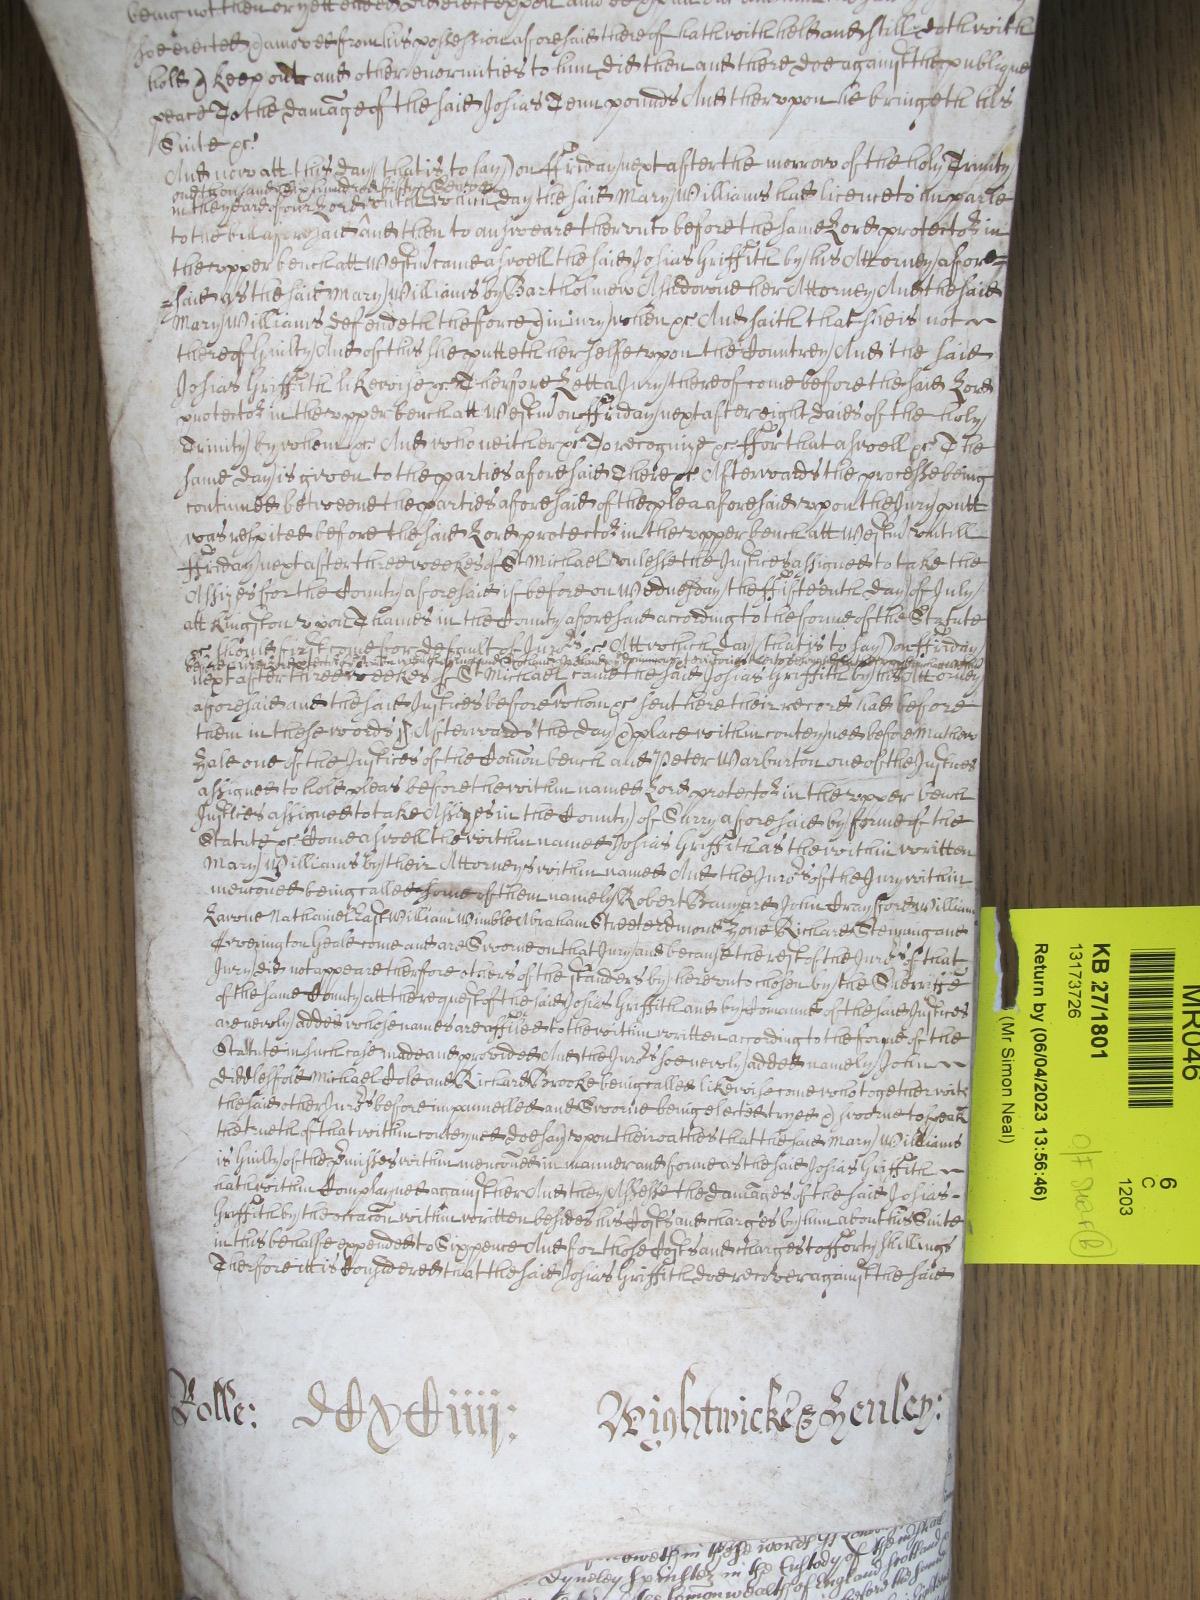 being not then or yett ended did eject expell and
soe ejected & amoved from his possession aforesaid thereof hath withheld and still doth with
hold & keep out and other enormities to him did then and there doe against the publique
peace To the damage of the said Josias Tenn pounds And therupon he bringeth his
Suite &c
And now att this day (that is to say) on ffriday next after the morrow of the holy Trinity
one thousand six hundred fiftie seven
in the yeare of our Lord untill which day the said Mary Williams had licence to imparle
to the bill aforesaid and then to answeare therunto before the same Lord protector in
the upper bench att Westmr came aswell the said Josias Griffith by his Attorney afore=
=said as the said Mary Williams by Bartholmew Ashdowne her Attorney And the said
Mary Williams defendeth the force & injury when &c And saith that she is not
thereof Guilty And of this she putteth her selfe upon the Countrey And the said
Josias Griffith likewise &c Therfore Lett a Jury thereof come before the said Lord
protector in the upper bench att Westmr on ffriday next after eight daies of the holy
Trinity by whom &c And who neither &c To recognize &c ffor that aswell &c The
same day is given to the parties aforesaid There &c Afterwards the processe being
continued betweene the parties aforesaid of the plea aforesaid upon the Jury putt
was respited before the said Lord protector in the upper bench att Westmr untill
ffriday next after three weekes of St Michael unlesse the Justices assigned to take the
Assizes for the County aforesaid if before on Wednesday the ffifteenth day of July
att Kingston upon Thames in the County aforesaid according to the forme of the Statute
&c should first come for default of Jurors &c Att which day (that is to say) on ffriday
next after three weekes of St Michael came the said Josias Griffith by his Attorney
aforesaid and the said Justices before whom &c sent here their record had before
them in these words ss Afterwards the day & place within conteyned before Mathew
Hale one of the Justices of the Comon bench and Peter Warburton one of the Justices
assigned to hold pleas before the within named Lord protector in the upper bench
Justices assigned to take Assizes in the County of Surry aforesaid by forme of the
Statute &c Come aswell the within named Josias Griffith as the within written
Mary Williams by their Attorneys within named And the Jurors of the Jury within
menconed being called some of them namely Robert Bampard John Crayford William
Lawne Nathaniel East William Wimble Abraham Streeter Edmond Hone Richard Stenning and
Coverington Heale come and are Sworne on that Jury and because the rest of the Jurors of that
Jury did not appeare therfore others of the standers by therunto chosen by the Sherriffe
of the same County att the request of the said Josias Griffith and by Comaund of the said Justices
are newly added whose names are affiled to the within written according to the forme of the
Statute in such case made and provided And the Jurors soe newly added namely John
Didlesfold Michael Cole and Richard Brooke being called likewise come who together with
the said other Jurors before impannelled and Sworne being elected tryed & sworne to speak
the trueth of that within conteyned doe say upon their oathes that the said Mary Williams
is Guilty of the premisses within menconed in manner and forme as the said Josias Griffith
hath within Complayned against her And they Assesse the damages of the said Josias
Griffith by the occacon within written besides his Costs and charges by him about his Suite
in this behalfe expended to Sixpence And for those Costs and charges to fforty shillings
Therfore itt is Considered that the said Josias Griffith doe recover against the said
Rolle: DCXCiiij: Wightwicke & Henley:
in these words ss
Dyneley Spinster in the Custody of the marshall
Comonwealth of England Scotland
MR046
6
C
1203
KB 27/1801
13173726
o/f Share B
(Mr Simon Neal)
Return by (06/04/2023 13:56:46)